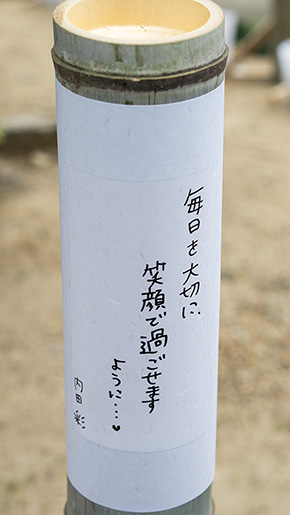 毎日を大切に、
笑顔で過ごせます
ように…♥
内田 彩